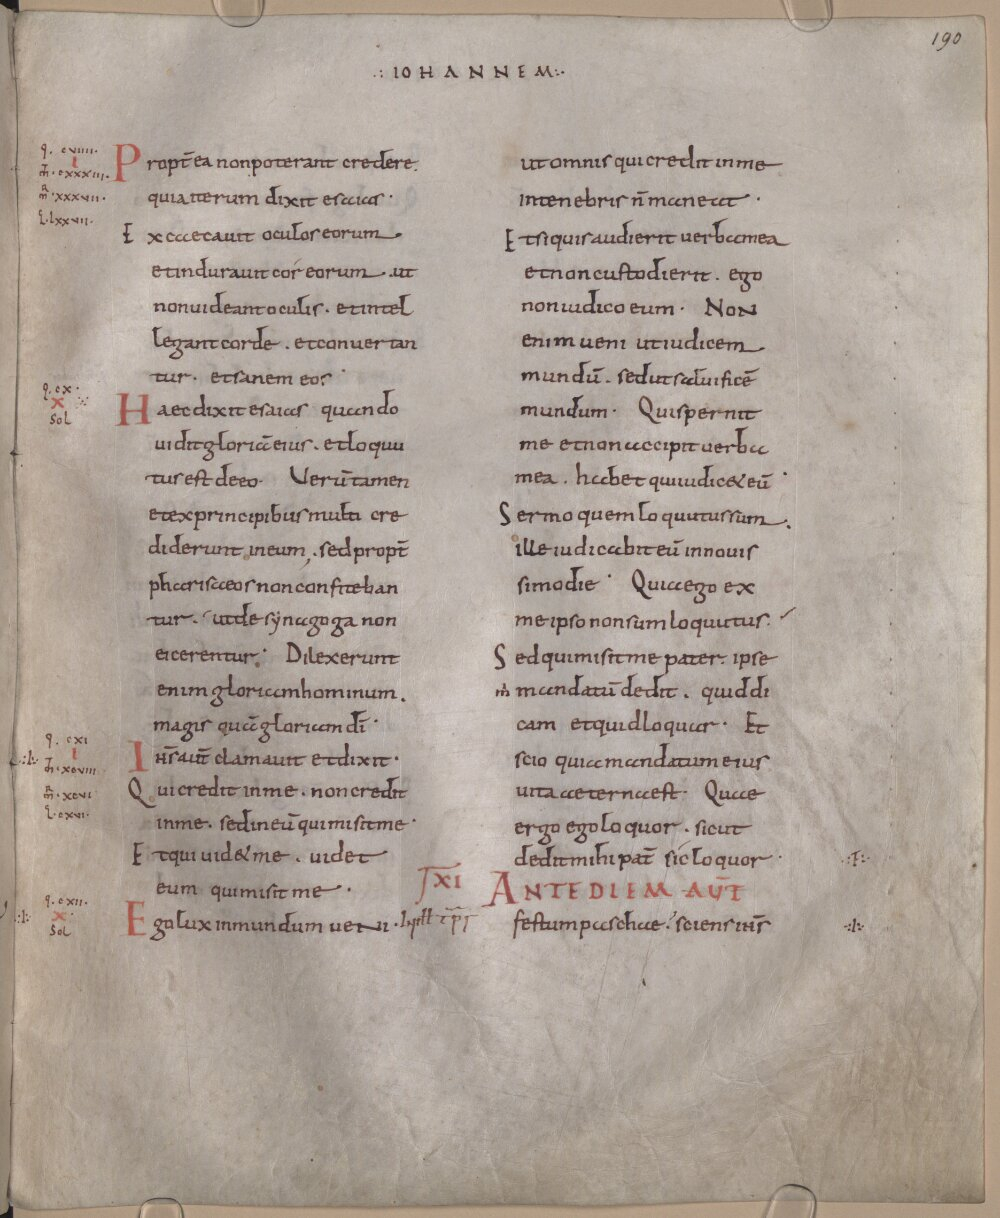 190
.: IOHANNEM :.
q. cviiii.
i
m̄. cxxxiii.
m̄R. xxxvii.
L. lxxvii.
Propt̄ea nonpoterant credere.
quia iterum dixit esaias ·
Excaecauit oculos eorum
et indurauit cor eorum . ut
non uideant oculis . et intel
legant corde . et conuertan
tur . et sanem eos ·
q. cx.
x
Sol
Haec dixit esaias quando
uidit gloriā eius . et loquu
tus est de eo . Uerūtamen
et ex principibus multi cre
diderunt in eum . sed propt̄
pharisaeos non confiteban
tur . ut de synagoga non
eicerentur . Dilexerunt
enim gloriam hominum .
magis quā gloriam dī ·
q. cxi
i
m̄. xcviii
m̄R. xcvi
L. cxvi.
Ihs̄ aut̄ clamauit et dixit ·
Qui credit in me . non credit
in me . sed in eū qui misit me ·
Et qui uid& me . uidet
eum qui misit me ·
q. cxii.
x
Sol
Ego lux in mundum ueni .
ut omnis qui credit in me
in tenebris n̄ maneat ·
Et si quis audierit uerba mea
et non custodierit . ego
non iudico eum · Non
enim ueni ut iudicem
mundū . sed ut saluificē
mundum · Qui spernit
me et non accipit uerba
mea . habet qui iudic& eū ·
Sermo quem loquutus sum .
ille iudicabit eū in nouis
simo die · Quia ego ex
me ipso non sum loquutus .
Sed qui misit me pater . ipse
m̄ mandatū dedit . quid di
cam et quid loquar · Et
scio quia mandatum eius
uita aeterna est · Quae
ergo ego loquor . sicut
dedit mihi pat̄ sic loquor ·
XI ANTE DIEM AUT̄
festum paschae . sciens ihs̄